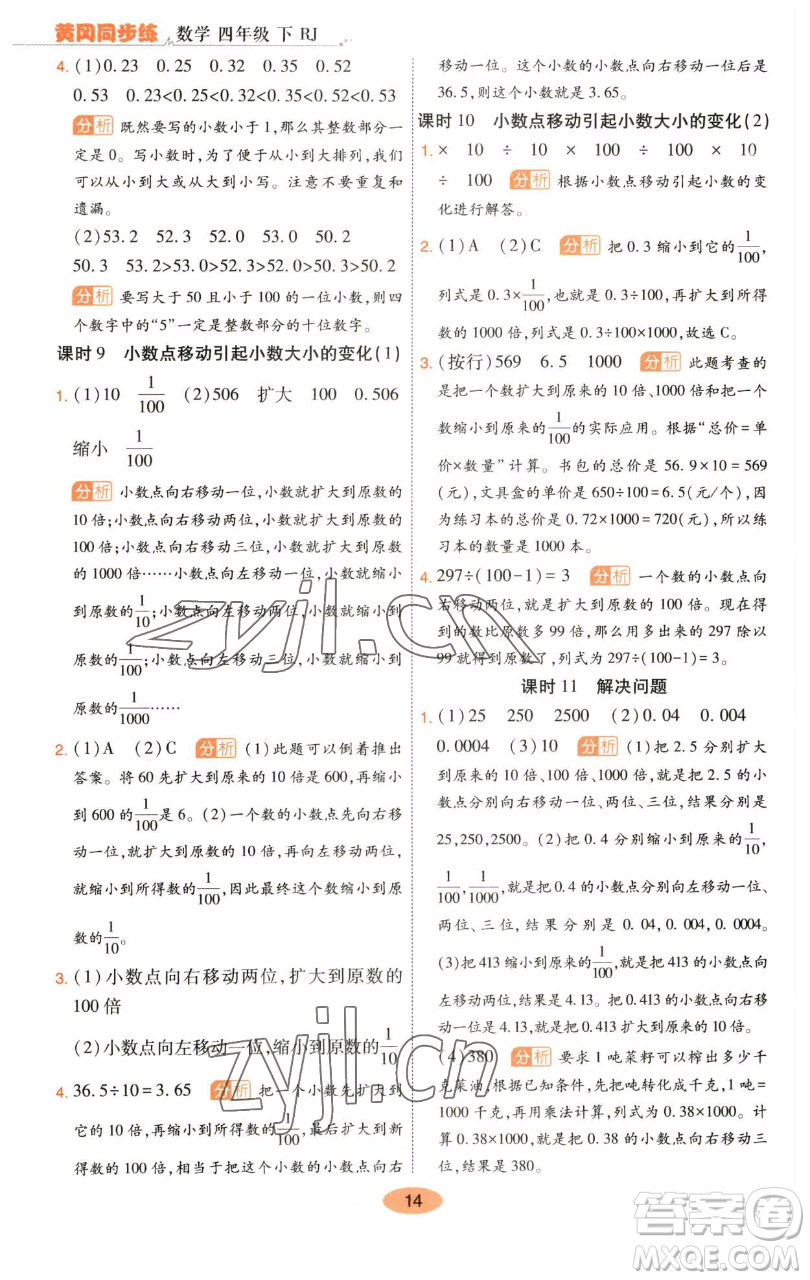 黄冈同步练 数学 四年级 下 RJ
4. (1)0.23 0.25 0.32 0.35 0.52
0.53 0.23<0.25<0.32<0.35<0.52<0.53
分析 既然要写的小数小于1,那么其整数部分一
定是0。写小数时,为了做到不重不漏,我
们可以从小到大或从大到小写。注意不要重复和
遗漏。
(2)53.2 52.3 52.0 53.0 50.2
50.3 53.2>53.0>52.3>52.0>50.3>50.2
分析 要写大于50且小于100的一位小数,则四
个数字中的“5”一定是整数部分的十位数字。
课时9 小数点移动引起小数大小的变化(1)
1. (1)10 1/100 (2)506 扩大 100 0.506
缩小 1/100
分析 小数点向右移动一位,小数就扩大到原数的
10倍;小数点向右移动两位,小数就扩大到原数的
100倍;小数点向右移动三位,小数就扩大到原数
的1000倍……小数点向左移动一位,小数就缩小
到原数的1/10;小数点向左移动两位,小数就缩小到
原数的1/100;小数点向左移动三位,小数就缩小到
原数的1/1000……
2. (1)A (2)C 分析 (1)此题可以倒着推出
答案。将60先扩大到原来的10倍是600,再缩小
到600的1/100是6。(2)一个数的小数点先向右移
动一位,就扩大到原数的10倍,再向左移动两位,
就缩小到所得数的1/100,因此最终这个数缩小到原
数的1/10。
3. (1)小数点向右移动两位,扩大到原数的
100倍
(2)小数点向左移动一位,缩小到原数的1/10
4. 36.5÷10=3.65 分析 把一个小数先扩大到
它的10倍,再缩小到它的1/100,最后扩大到新
得数的100倍,相当于把这个小数的小数点向右
移动一位。这个小数的小数点向右移动一位后是
36.5,则这个小数就是3.65。
课时10 小数点移动引起小数大小的变化(2)
1. × 10 ÷ 10 × 100 × 10
÷ 100 分析 根据小数点移动引起小数的变
化进行解答。
2. (1)A (2)C 分析 把0.3缩小到它的1/100,
列式是0.3×1/100,也就是0.3÷100,再扩大到所得
数的1000倍,列式是0.3÷100×1000,故选C。
3. (按行)569 6.5 1000 分析 此题考查的
是把一个数扩大到原来的10倍、1000倍和把一个
数缩小到原来的1/100的实际应用。根据“总价=单
价×数量”计算。书包的总价是56.9×10=569
(元),文具盒的单价是650÷100=6.5(元),因
为练习本的总价是0.72×1000=720(元),所以练
习本的数量是1000本。
4. 297÷(100-1)=3 分析 一个数的小数点向
右移动两位,就是扩大到原数的100倍。现在得
到的数比原数多99倍,那么用多出来的297除以
99就得到原数了,列式为297÷(100-1)=3。
课时11 解决问题
1. (1)25 250 2500 (2)0.04 0.004
0.0004 (3)10 分析 (1)把2.5分别扩大
到原来的10倍、100倍、1000倍,就是把2.5的小
数点分别向右移动一位、两位、三位,结果分别是
25,250,2500。(2)把0.4分别缩小到原来的1/10,
1/100,1/1000,就是把0.4的小数点分别向左移动一位、
两位、三位,结果分别是0.04,0.004,0.0004。
(3)把413缩小到原来的1/100,就是把小数点向左
移动两位,结果是4.13。把0.413的小数点向右移
动一位,结果是4.13,就是把0.413扩大到原来的
10倍。
(4)380 分析 要求1吨菜籽可以榨出多少千
克菜油,根据已知条件,先把吨转化成千克,1吨=
1000千克,再用乘法计算,列式为0.38×1000。计
算0.38×1000,就是把0.38的小数点向右移动三
位,结果是380。
14
zyjl.cn
zyjl.cn
答案圈
MXQE.COM